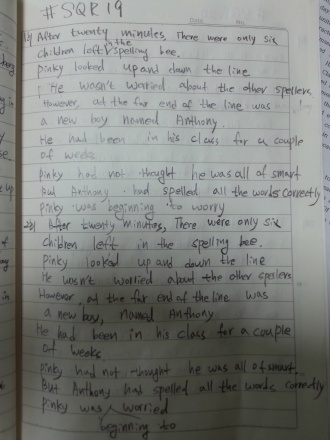 #SQR19
Date No
1) After twenty minutes, There were only six
children left in the spelling bee.
pinky looked up and down the line
He wasn't worried about the other spellers
However, at the far end of the line was
a new boy named Anthony.
He had been in his class for a couple
of weeks
pinky had not thought he was all of smart
But Anthony had spelled all the words correctly
pinky was beginning to worry
2) After twenty minutes, There were only six
children left in the spelling bee.
pinky looked up and down the line
He wasn't worried about the other spellers
However, at the far end of the line was
a new boy, named Anthony
He had been in his class for a couple
of weeks
pinky had not thought he was all of smart.
But Anthony had spelled all the words correctly
pinky was worried
beginning to